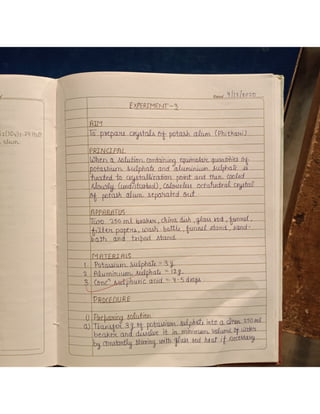 Date 9/12/2020
EXPERIMENT-3
AIM
To prepare crystals of potash alum (Phitkari)
PRINCIPAL
When a solution containing equimolar quantities of
potassium sulphate and aluminium sulphate is
heated to crystallization point and then cooled
slowly (undisturbed), colourless octahedral crystal
of potash alum separated out.
APPARATUS
Two 250 ml beaker, china dish, glass rod, funnel,
filter papers, wash bottle, funnel stand, sand-
bath and tripod stand
MATERIALS
1. Potassium sulphate = 3 g
2. Aluminium sulphate = 12 g
3. Conc. sulphuric acid = 4-5 drops
PROCEDURE
1) Preparing solution
a) Transfer 3 g of potassium sulphate into a clean 250 ml
beaker and dissolve it in minimum volume of water
by constantly stirring with glass rod heat if necessary
alum